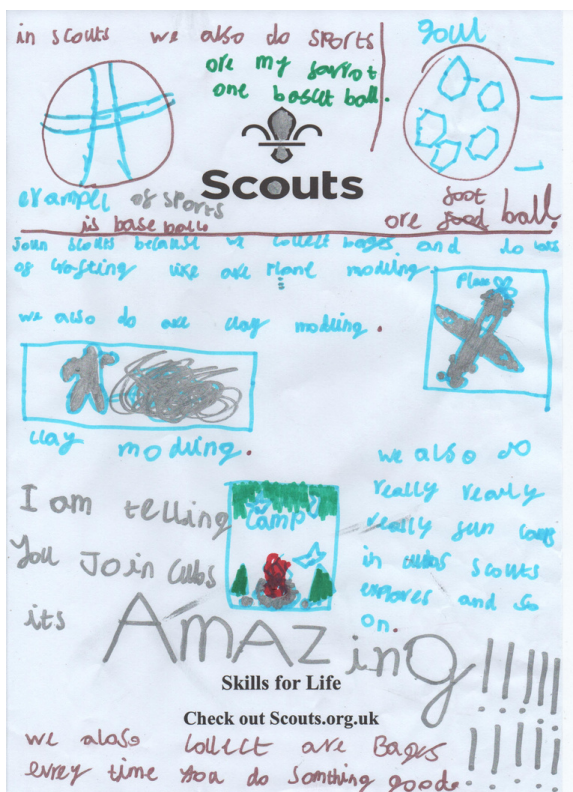 in scouts we also do sports
ore my farrot
one basket ball.
goul
Scouts
exampel of sports
is base balls
ore foot ball.
Join scouts because we collect bages and do lots
of crafting like are Plane modling.
Plane
we also do are clay modling.
clay modling.
we also do
really really
really fun camps
in cubs scouts
explores and so
on.
camp
I am telling
you Join cubs
its
AMAZinG!!!!!
Skills for Life
Check out Scouts.org.uk
we alaso collect are Bages
evrey time you do somthing good.